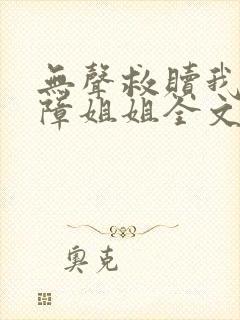 無聲救贖我
障姐姐全文
奧克